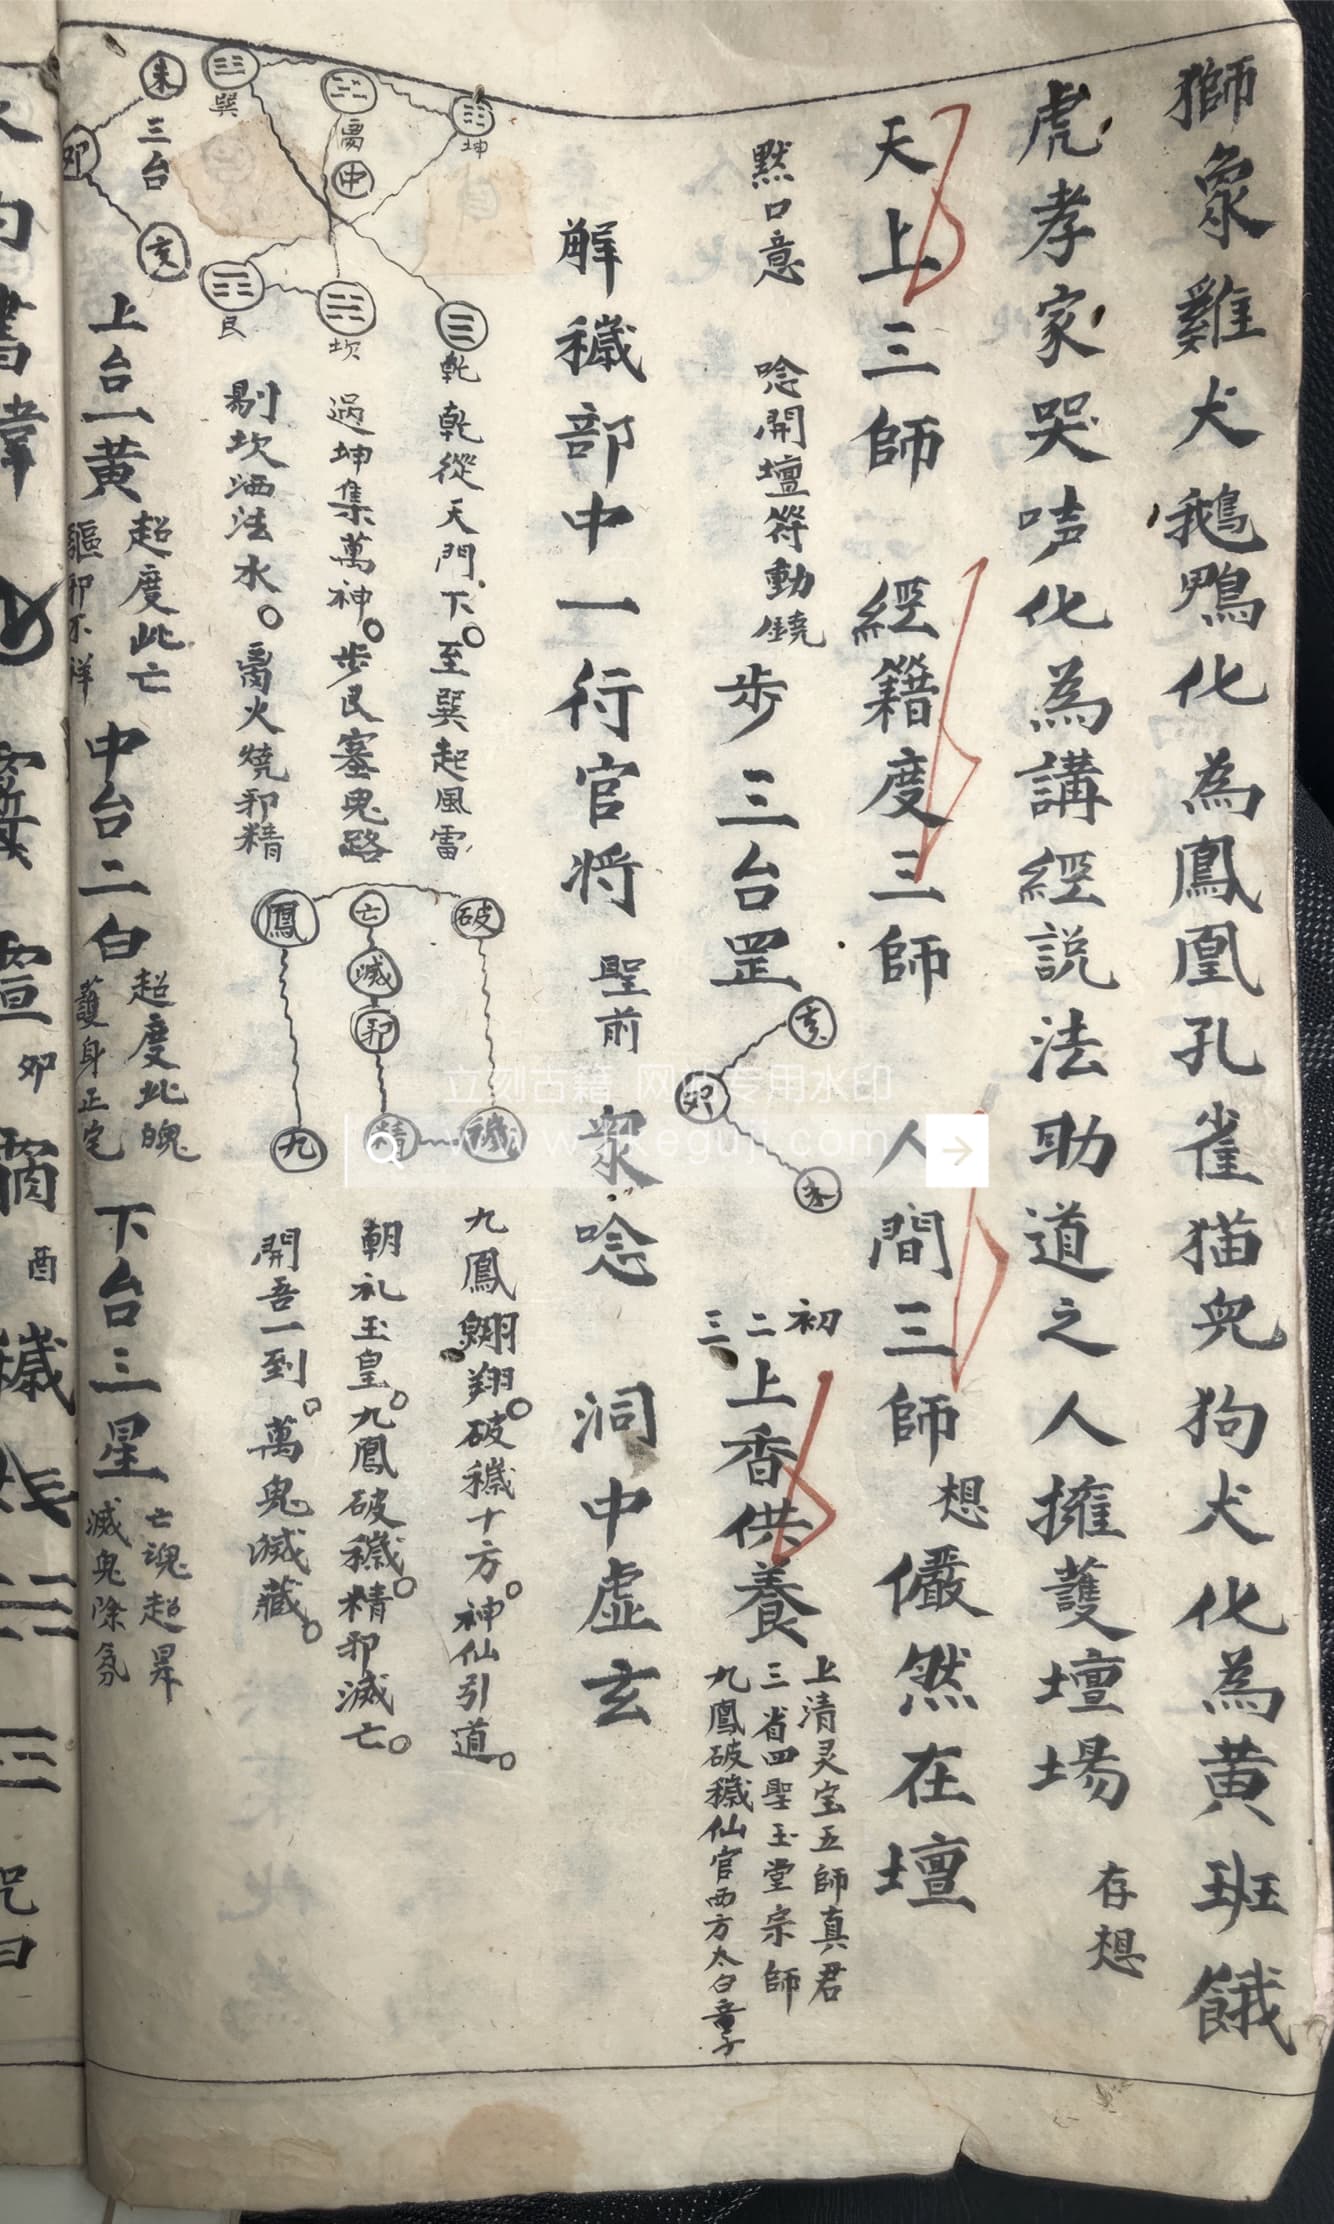 獅象雞犬鵝鴨化為鳳凰孔雀猫皃狗犬化為黄班餓
虎孝家哭声化為講經説法助道之人擁護壇場 存想
天上三師 經籍度三師 人間三師 想 儼然在壇
默口意 唸開壇符動鐃
步三台罡
亥 卯 未
初 二 三 上香供養
上清灵宝五師真君
三省四聖玉堂宗師
九鳳破穢仙官西方太白童子
解穢部中一行官将 聖前 衆唸 洞中虚玄
坤 離 中 巽
乾 坎 艮
乾從天門下至巽起風雷
過坤集萬神步艮塞鬼路
剔坎洒法水離火燒邪精
破 亡 滅 邪 鳳
穢 精 九
九鳳翱翔破穢十方神仙引道
朝礼玉皇九鳳破穢精邪滅亡
開吾一到萬鬼滅藏
朱 三台 卯 亥
上台一黄 超度此亡 驅邪不祥
中台二白 超度此魄 護身正宅
下台三星 亡魂超昇 滅鬼除氛
立刻古籍 网站专用水印
卯
酉 穢
咒曰